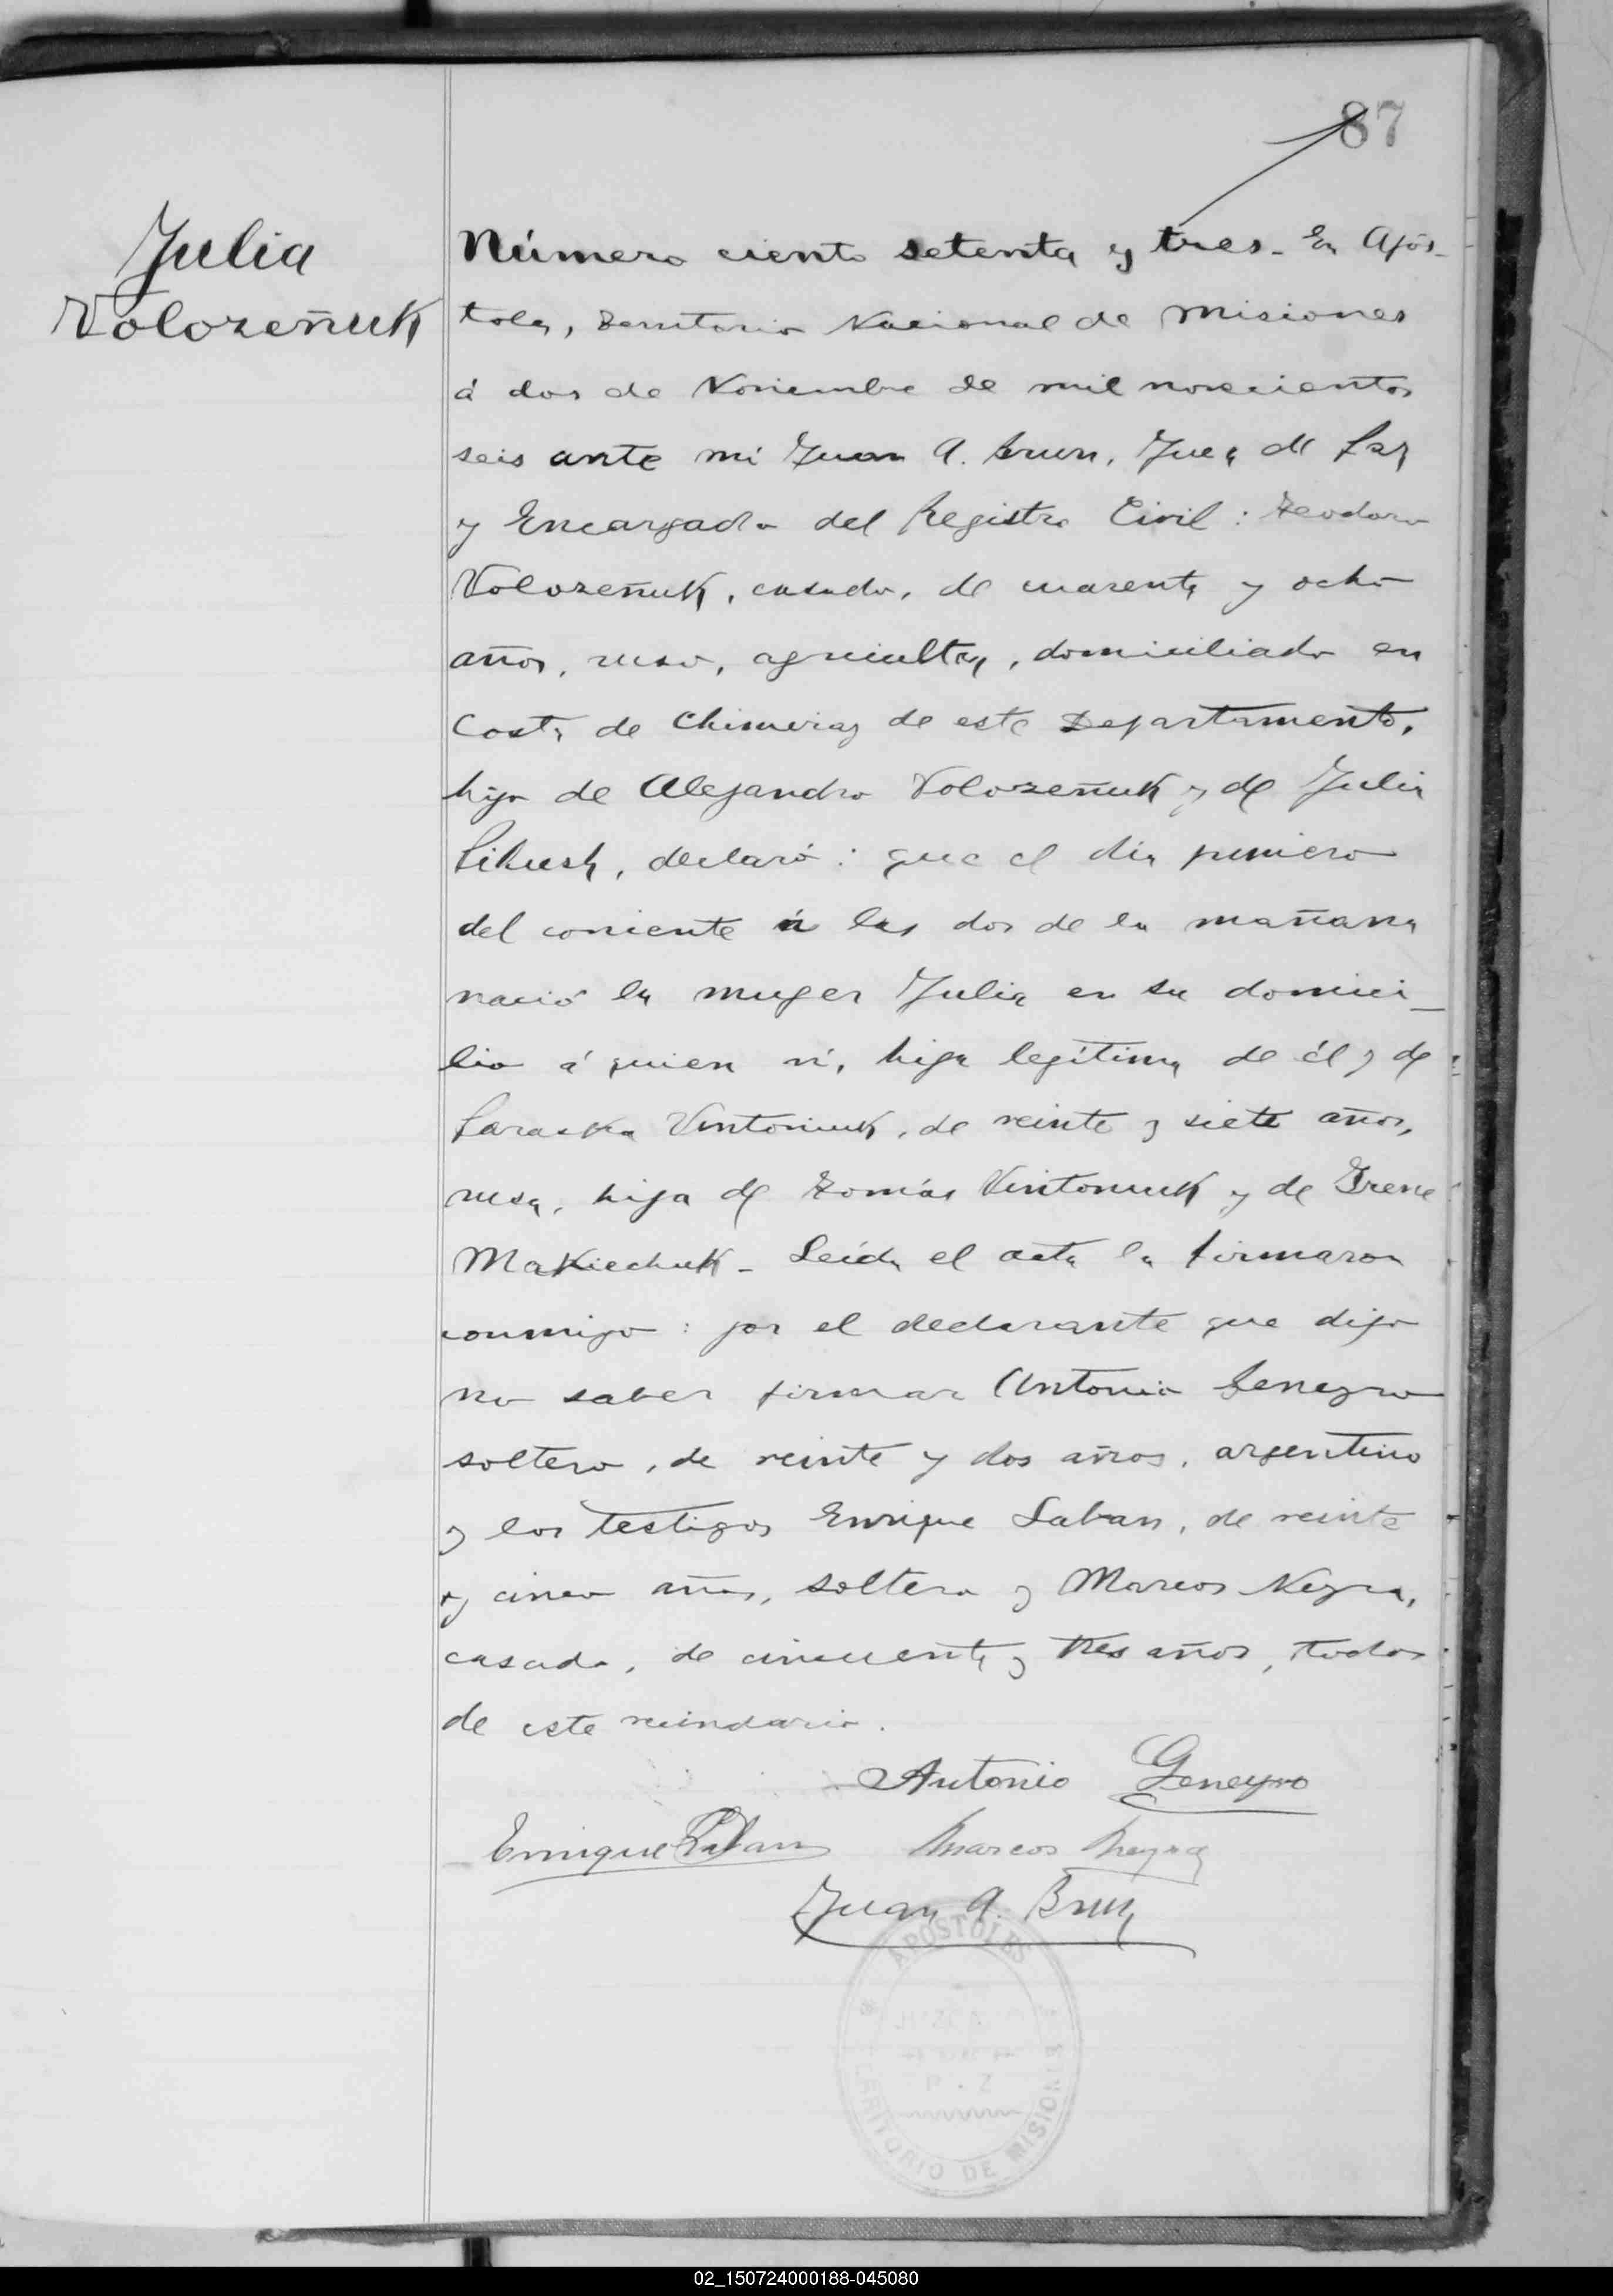 87
Julia
Volozeñuk
Número ciento setenta y tres. En Após-
toles, Territorio Nacional de Misiones
á dos de Noviembre de mil novecientos
seis ante mi Juan A. Brun, Juez de Paz
y Encargado del Registro Civil: Teodoro
Volozeñuk, casado, de cuarenta y ocho
años, ruso, agricultor, domiciliado en
Costa de Chimiray de este Departamento,
hijo de Alejandro Volozeñuk y de Julia
declaró: que el dia primero
del corriente á las dos de la mañana
nació la muger Julia en su domici-
lio á quien ví, hija legítima de él y de
Paraska Vintoniuk, de veinte y siete años,
rusa, hija de Tomás Vintoniuk y de Irene
Makiechuk - Leida el acta la firmaron
conmigo: por el declarante que dijo
no saber firmar Antonio Geneyro
soltero, de veinte y dos años, argentino
y los testigos Enrique Laban, de veinte
y cinco años, soltero y Marcos Neyra,
casado, de cincuenta y tres años, todos
de este vecindario.
Antonio Geneyro
Enrique Laban Marcos Neyra
Juan A. Brun
APOSTOLES
TERRITORIO DE MISIONES
02_150724000188-045080